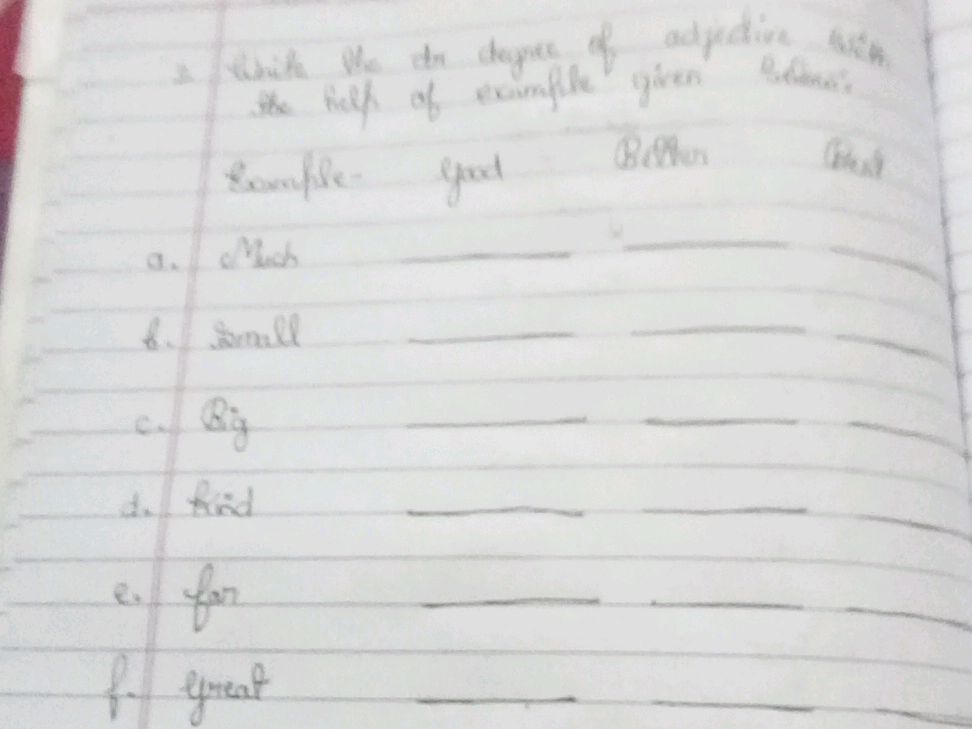 Write the dn degree of adjective with
the help of example given below:
Example- Good Better Best
a. Much
b. Small
c. Big
d. Kind
e. far
f. Great